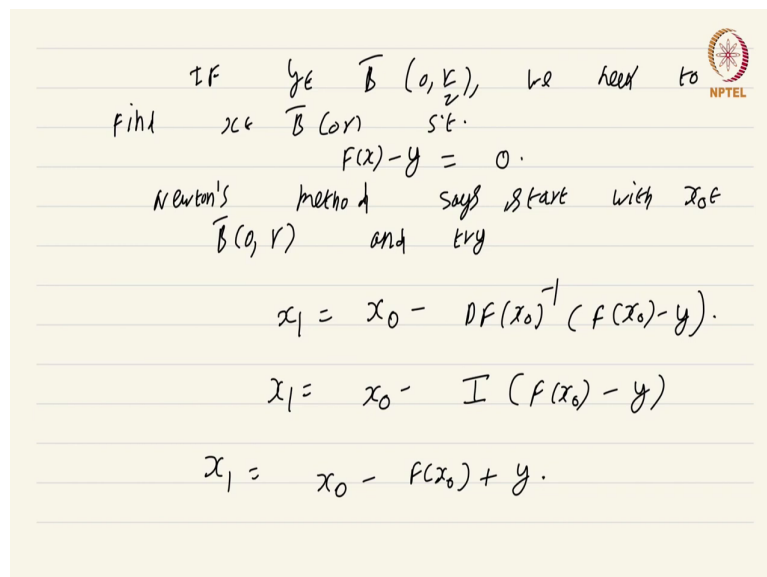 IF y∈ B̅ (0, r/2), we need to
NPTEL
Find x∈ B̅ (0,r) s.t.
F(x) - y = 0.
Newton's method says start with x₀∈
B̅(0, r) and try
x₁ = x₀ - DF(x₀)⁻¹ (F(x₀) - y).
x₁ = x₀ - I (F(x₀) - y)
x₁ = x₀ - F(x₀) + y.